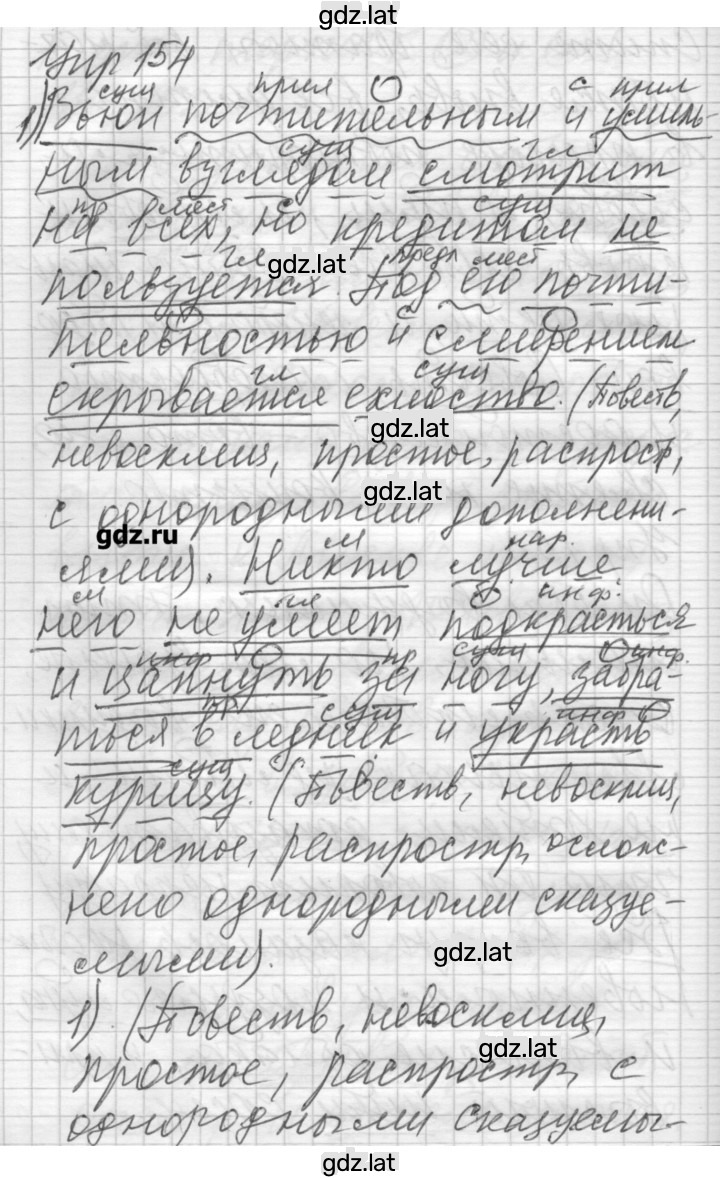 gdz.lat
Упр 154
сущ прил с прил
1) Вьюн почтительным и умиль-
сущ гл
ным взглядом смотрит
пр мест с сущ
на всех, но кредитом не
gdz.lat
гл предл мест
пользуется. Под его почти-
с
тельностью и смирением
гл сущ
скрывается ехидство. (Повеств,
gdz.lat
невосклиц, простое, распрост,
gdz.lat
с однородными дополнени-
gdz.ru
м нар.
ями). Никто лучше
м гл инф.
него не умеет подкрасться
инф пр сущ инф.
и цапнуть за ногу, забра-
пр сущ инф
ться в ледник и украсть
сущ
курицу. (Повеств, невосклиц,
простое, распростр, ослож-
нено однородными сказуе-
мыми).
gdz.lat
1). (Повеств, невосклиц,
gdz.lat
простое, распростр, с
однородными сказуемы-
gdz.lat